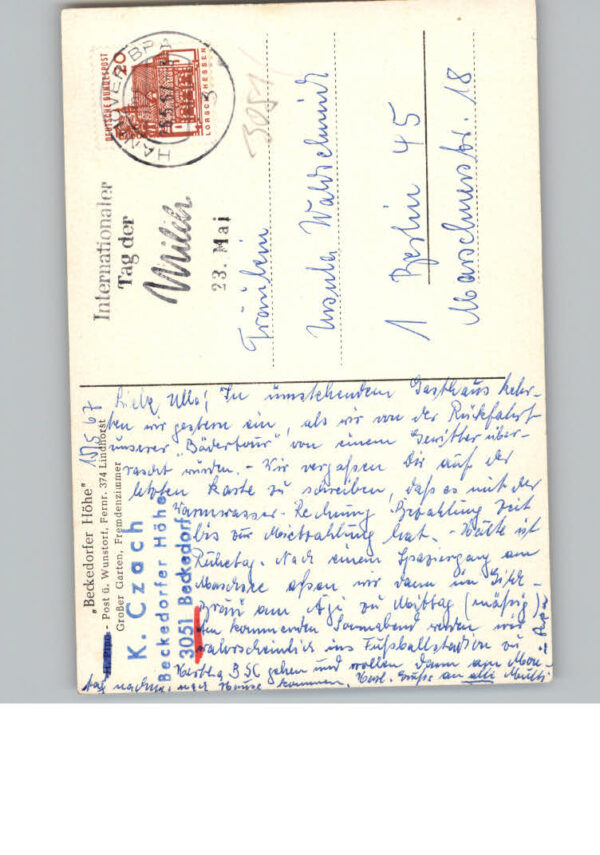 "Beckedorfer Höhe"
- Post ü. Wunstorf, Fernr. 374 Lindhorst
Großer Garten, Fremdenzimmer
K. Czach
Beckedorfer Höhe
3051 Beckedorf
15/5 67
Liebe Ulla! In umstehendem Gasthaus kehr-
ten wir gestern ein, als wir von der Rückfahrt
unserer "Bädertour" von einem Gewitter über-
rascht wurden. - Wir vergaßen Dir auf der
letzten Karte zu schreiben, daß es mit der
Warmwasser-Rechnung Bezahlung Zeit
bis zur Mietzahlung hat. - Heute ist
Ruhetag. Nach einem Spaziergang am
Maschsee aßen wir dann im
am Agi zu Mittag (mäßig)
Am kommenden Sonnabend werden wir
wahrscheinlich ins Fußballstadion zu
Hertha BSC gehen und wollen dann am Mon-
tag nachm. nach Hause kommen. Herzl. Grüße an alle
DEUTSCHE BUNDESPOST
20
LORSCH/HESSEN
HANNOVER BPA
3
Internationaler
Tag der
Milch
23. Mai
3051
Fräulein
Ursula Waldschmidt
1 Berlin 45
Maroschnerstr. 18